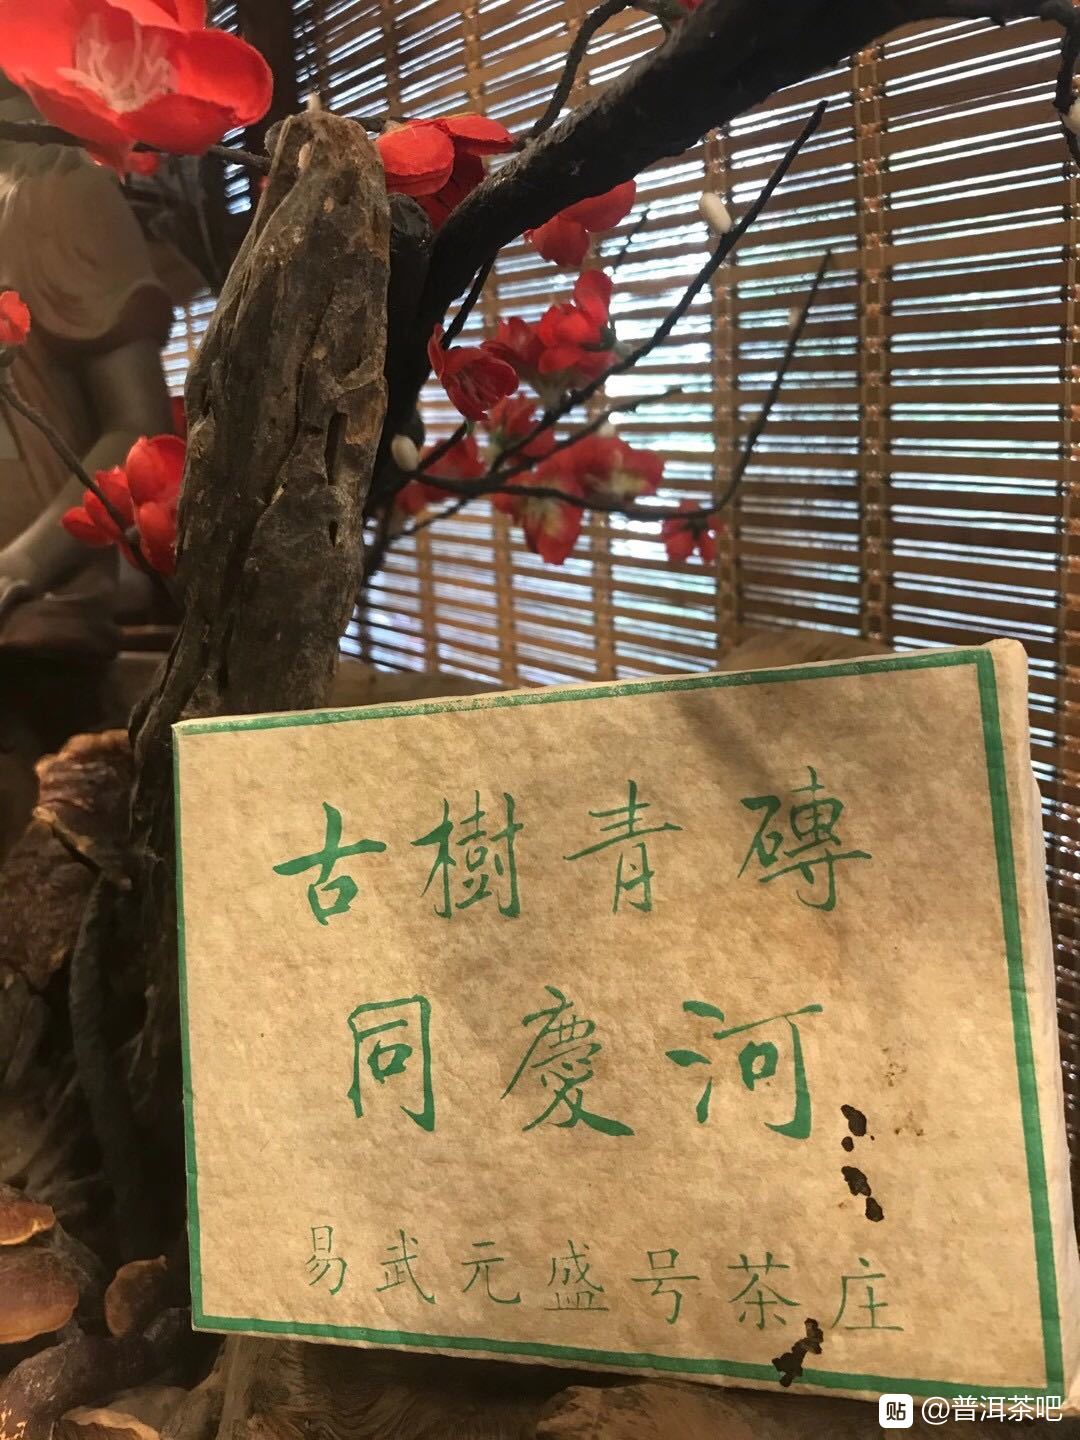 古樹青磚
同慶河
易武元盛号茶庄
贴 @普洱茶吧